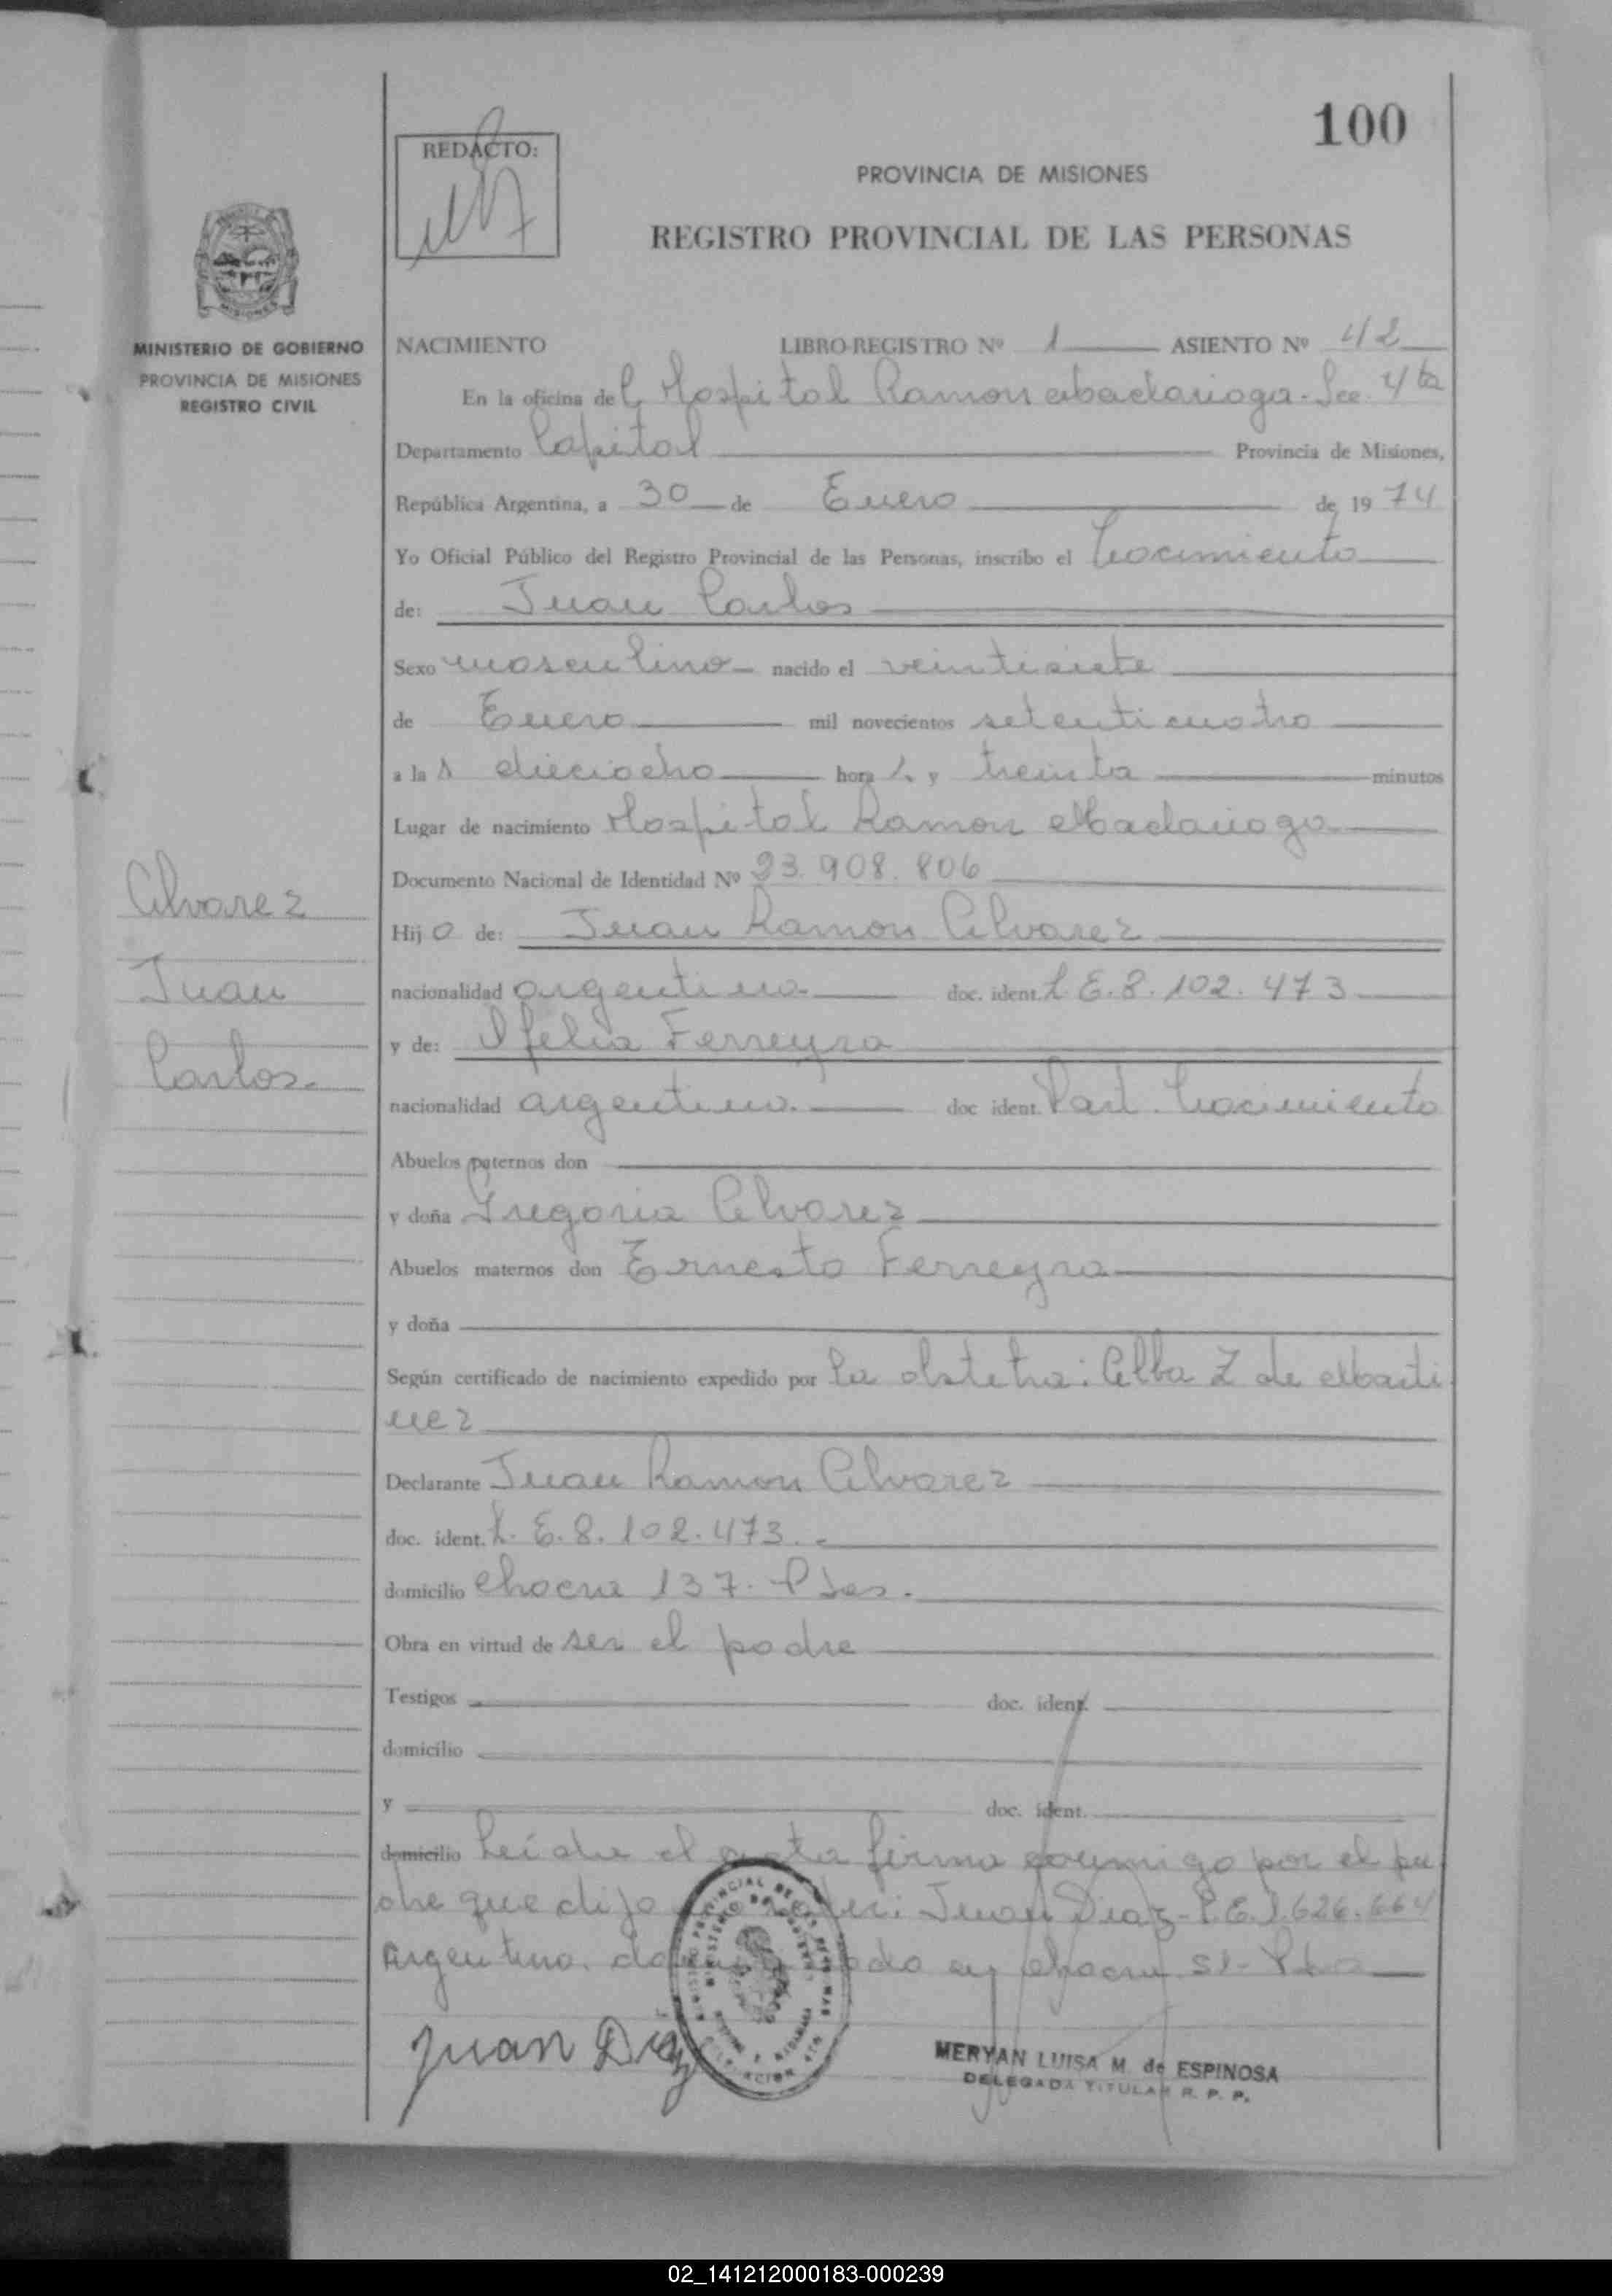 100
REDACTO:
PROVINCIA DE MISIONES
REGISTRO PROVINCIAL DE LAS PERSONAS
MINISTERIO DE GOBIERNO
PROVINCIA DE MISIONES
REGISTRO CIVIL
NACIMIENTO LIBRO-REGISTRO Nº 1 ASIENTO Nº 42
En la oficina del Hospital Ramon Madariaga - Sec. 4ta
Departamento Capital Provincia de Misiones,
República Argentina, a 30 de Enero de 1974
Yo Oficial Público del Registro Provincial de las Personas, inscribo el Nacimiento
de: Juan Carlos
Sexo masculino nacido el veintisiete
de Enero mil novecientos setenticuatro
a las dieciocho horas y treinta minutos
Lugar de nacimiento Hospital Ramon Madariaga
Documento Nacional de Identidad Nº 23.908.806
Alvarez
Juan
Carlos.
Hijo de: Juan Ramon Alvarez
nacionalidad argentina doc. ident. L.E. 8.102.473
y de: Ofelia Ferreyra
nacionalidad argentina. doc ident. Part. Nacimiento
Abuelos paternos don
y doña Gregoria Alvarez
Abuelos maternos don Ernesto Ferreyra
y doña
Según certificado de nacimiento expedido por la obstetra: Alba Z de Marti
nez
Declarante Juan Ramon Alvarez
doc. ident. L.E. 8.102.473.
domicilio Chacra 137. Pdas.
Obra en virtud de ser el padre
Testigos doc. ident.
domicilio
y doc. ident.
domicilio Leída el acta firma conmigo por el pa
dre que dijo Juan Diaz - L.E. 1.626.664
Argentino. en chacra 51- Pdas
Juan Diaz
MERYAN LUISA M. de ESPINOSA
DELEGADA TITULAR R. P. P.
02_141212000183-000239